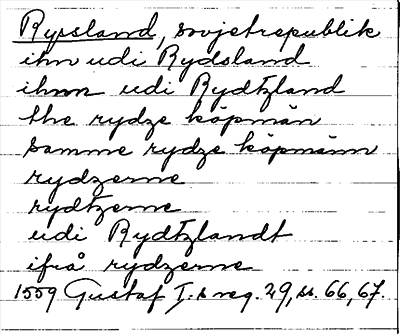 Ryssland, sovjetrepublik
ihn udi Rydsland
ihnn udi Rydtzland
the rydze köpmän
samme rydze köpmänn
rydzerne
rydtzerne
udi Rydtzlandt
ifrå rydzerne
1559 Gustaf I.s reg. 29, ss. 66, 67.